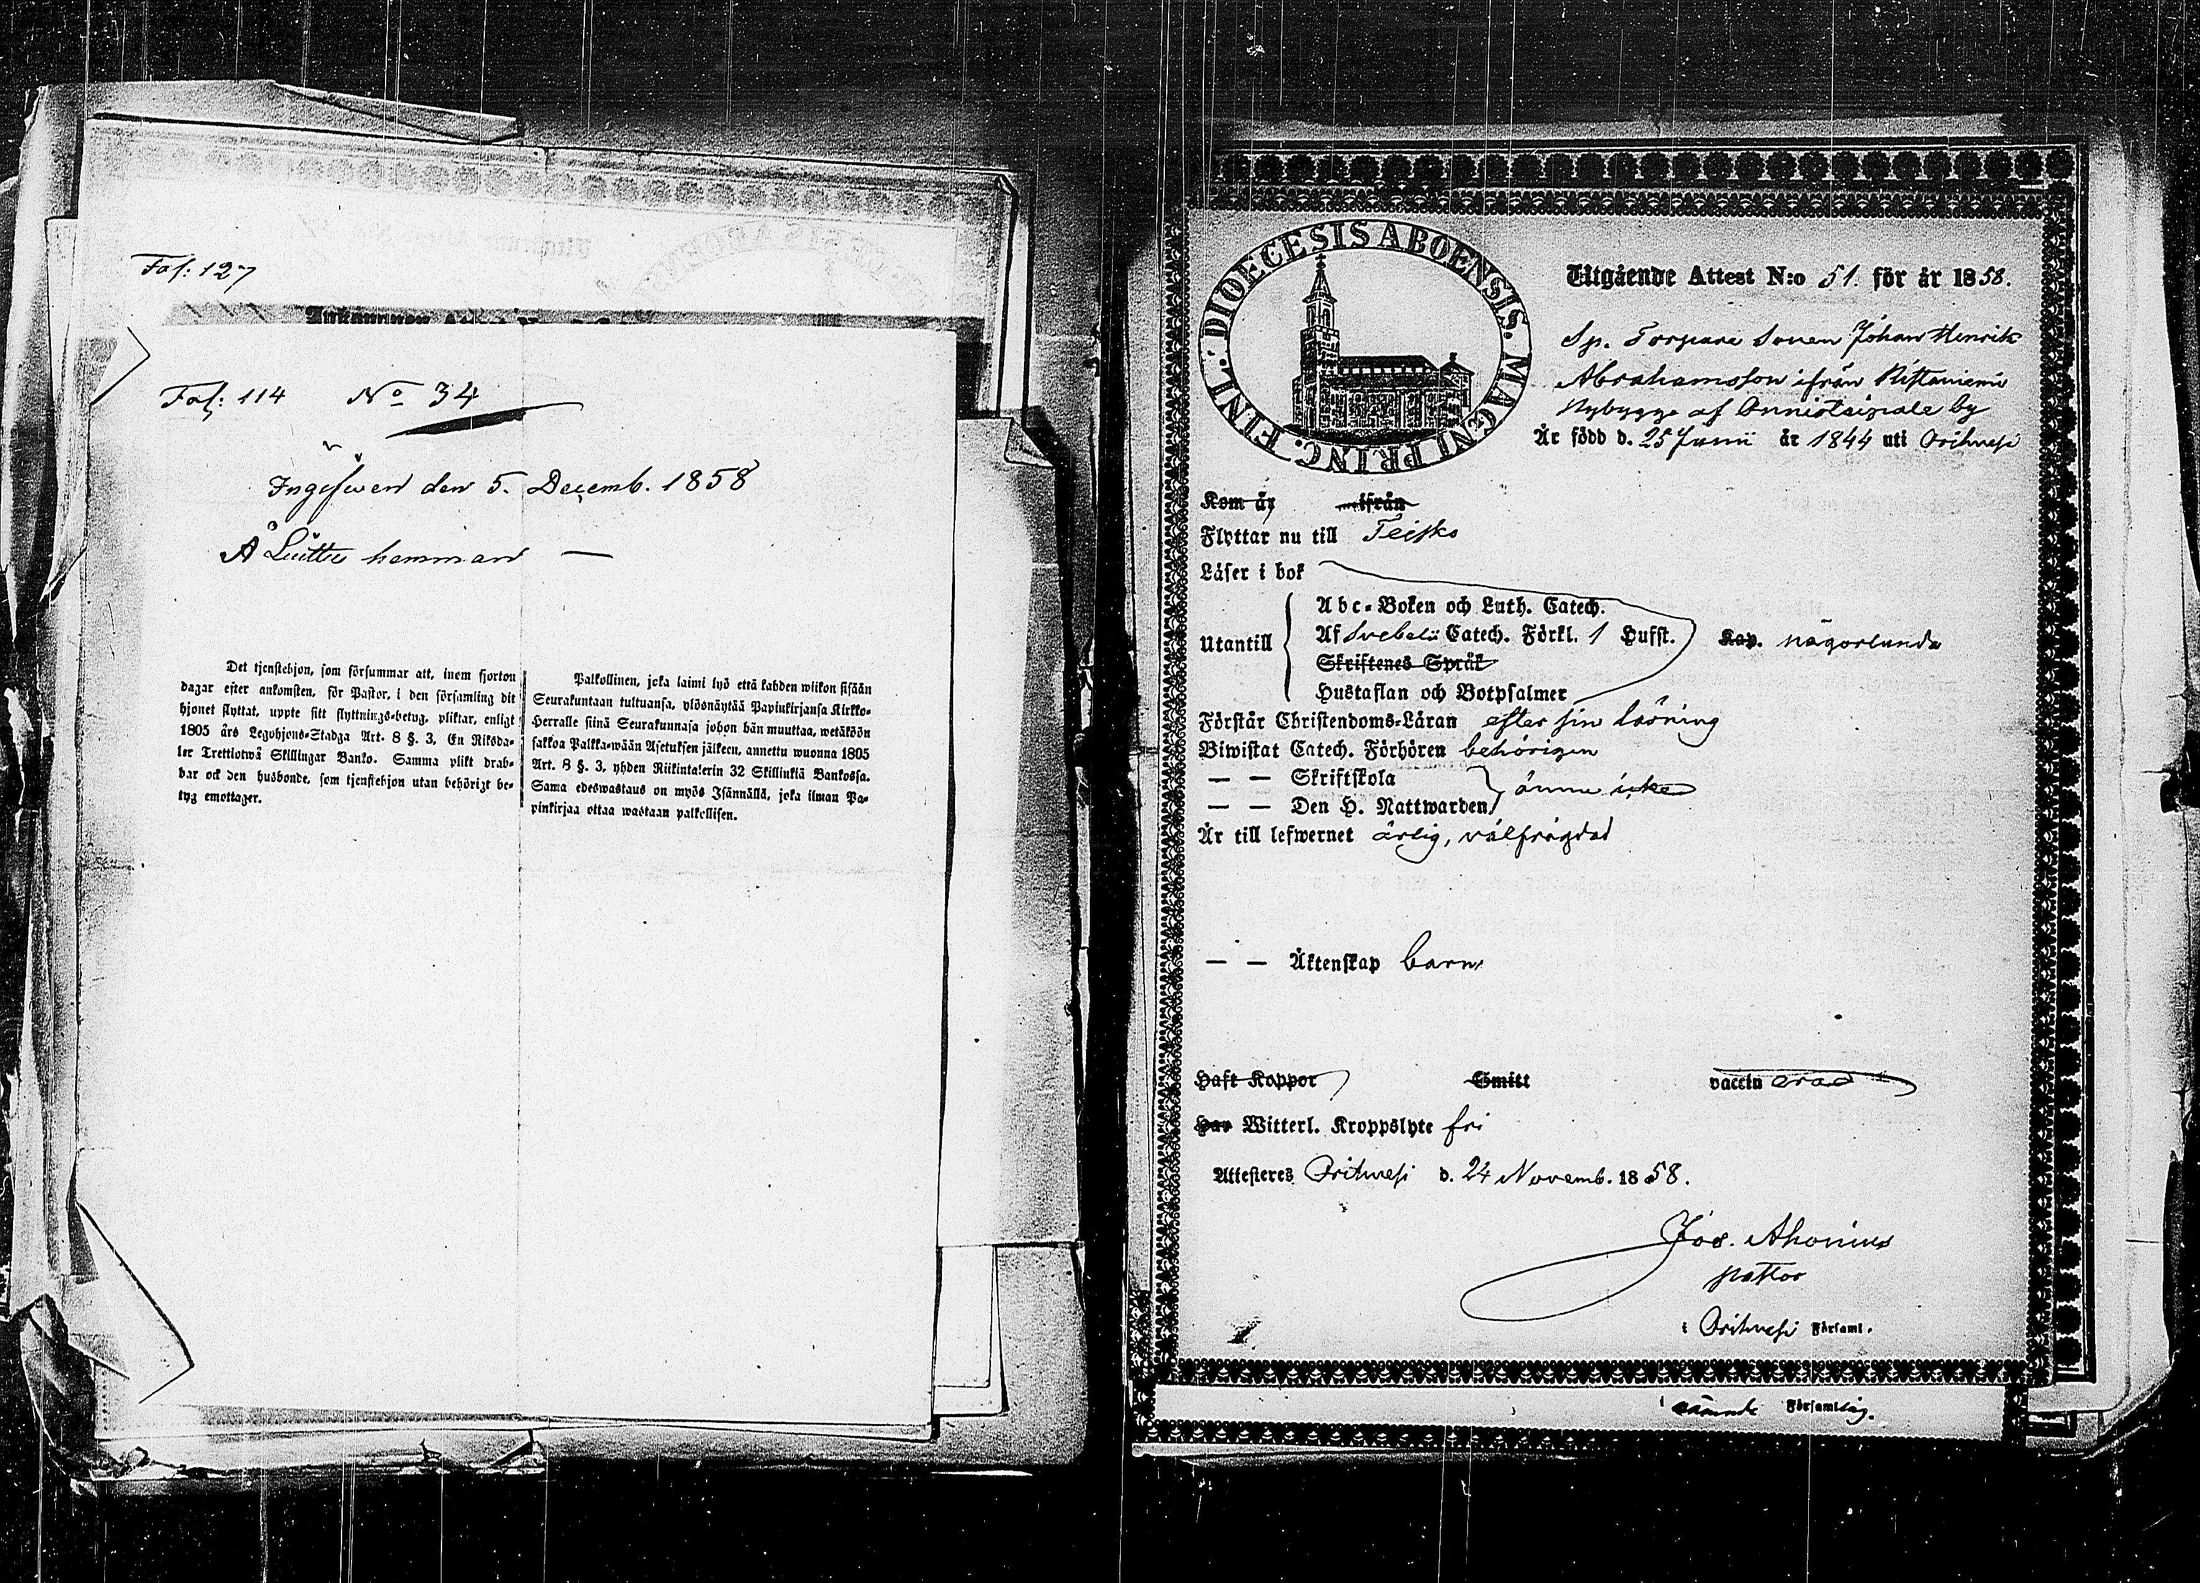 Fol: 127
Fol: 114 No 34
Ingifwen den 5. Decemb. 1858
Å Liuttu hemman —
Det tjenstehjon, som försummar att, inem fjorton
dagar efter ankomsten, för Pastor, i den församling dit
hjonet flyttat, uppte sitt flyttnings-betyg, pliktar, enligt
1805 års Legohjons-Stadga Art. 8 §. 3, En Riksda-
ler Trettiotwå Skillingar Banko. Samma plikt drab-
bar ock den husbonde, som tjenstehjon utan behörigt be-
tyg emottager.
Palkollinen, joka laimi lyö että kahden wiikon sisään
Seurakuntaan tultuansa, ylösnäytää Papinkirjansa Kirkko-
Herralle siinä Seurakunnasa johon hän muuttaa, wetäköön
sakkoa Palkka-wään Asetuksen jälkeen, annettu wuonna 1805
Art. 8 §. 3, yhden Riikintalerin 32 Skillinkiä Bankossa.
Sama edeswastaus on myös Isännällä, joka ilman Pa-
pinkirjaa ottaa wastaan palkollisen.
DIOECESIS ABOENSIS. MAGNI PRINC. FINL.
Utgående Attest N:o 51. för år 1858.
Sp. Torpare Sonen Johan Henrik
Abrahamsson ifrån Ristaniemi
Nybygge af Onnistaipale by
Är född d. 25 Junii år 1844 uti Orihwesi
Kom år ifrån
Flyttar nu till Teisko
Läser i bok
Utantill
Abc-Boken och Luth. Catech.
Af Svebelii Catech. Förkl. 1 Hufst. Kap. någorlunda
Skriftenes Språk
Hustaflan och Botpsalmer
Förstår Christendoms-Läran efter sin läsning
Biwistat Catech. Förhören behörigen
— — Skriftskola
— — Den H. Nattwarden ännu icke
Är till lefwernet ärlig, välfrägdad
— — Äktenskap barn
Haft Koppor Smitt vaccin erad
Har Witterl. Kroppslyte fri
Attesteres Orihwesi d. 24 Novemb. 1858.
Jos. Ahonius
pastor
i Orihwesi Församl.
i samma Församling.